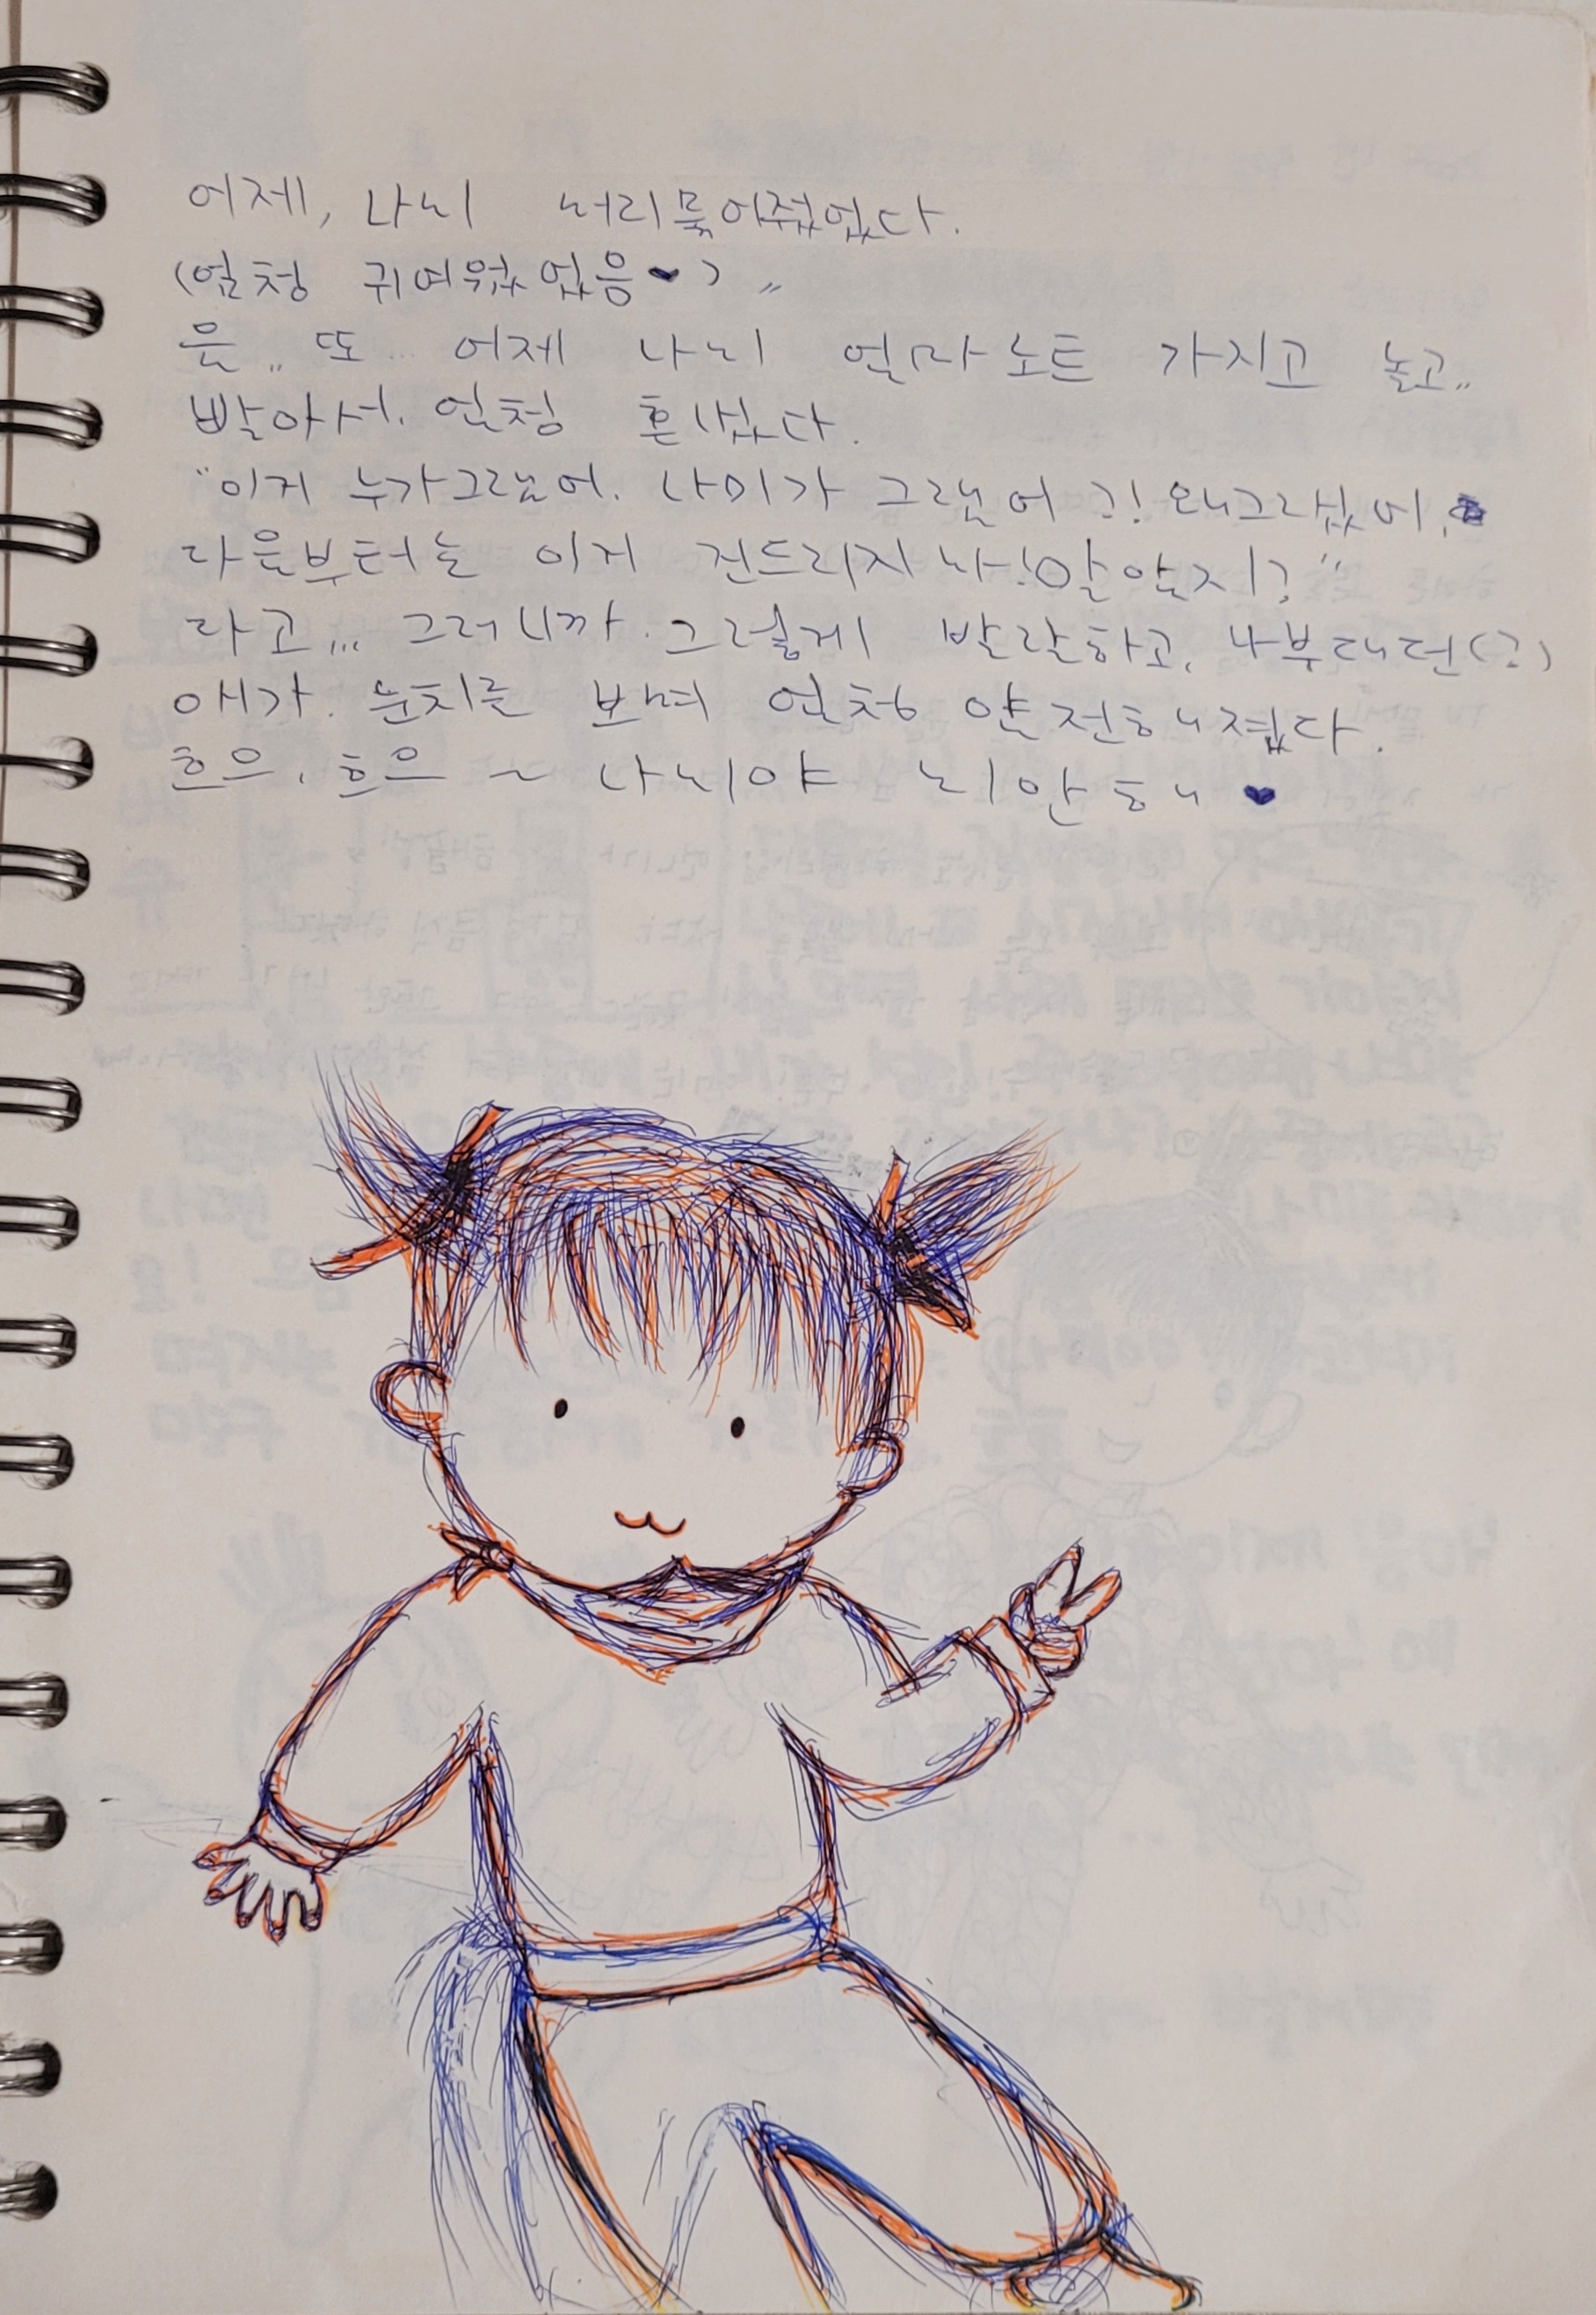 어제, 나미 머리묶어줬었다.
(엄청 귀여웠었음♥)〃
음.. 또... 어제 나미 엄마노트 가지고 놀고..
밟아서. 엄청 혼났었다.
"이거 누가그랬어. 나미가 그랬어?! 왜그랬어.
다음부터는 이거 건드리지 마! 알았지?"
라고... 그러니까. 그렇게 발랄하고, 나부대던(?)
애가. 눈치를 보며 엄청 얌전해졌다.
흐으, 흐으 ~ 나미야 미안해 ♥